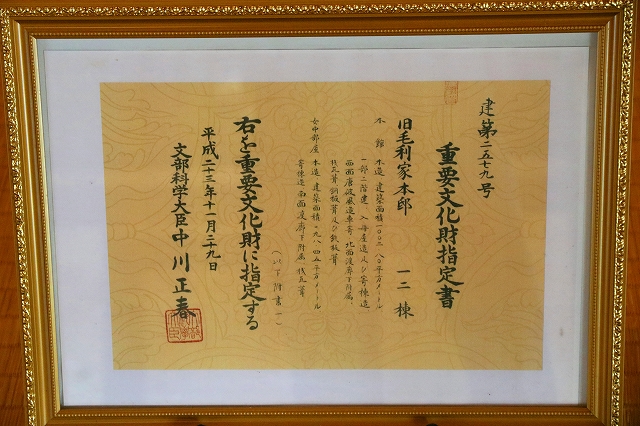 建第二五七九号
重要文化財指定書
旧毛利家本邸 一二棟
本館 木造 建築面積一〇〇二・八〇平方メートル
一部二階建 入母屋造及び寄棟造
西面唐破風造車寄 北面渡廊下附属
桟瓦葺銅板葺及び鉄板葺
女中部屋 木造 建築面積一九八・四五平方メートル
寄棟造 南面渡廊下附属 桟瓦葺
(以下附書一)
右を重要文化財に指定する
平成二十三年十一月二十九日
文部科学大臣 中川正春